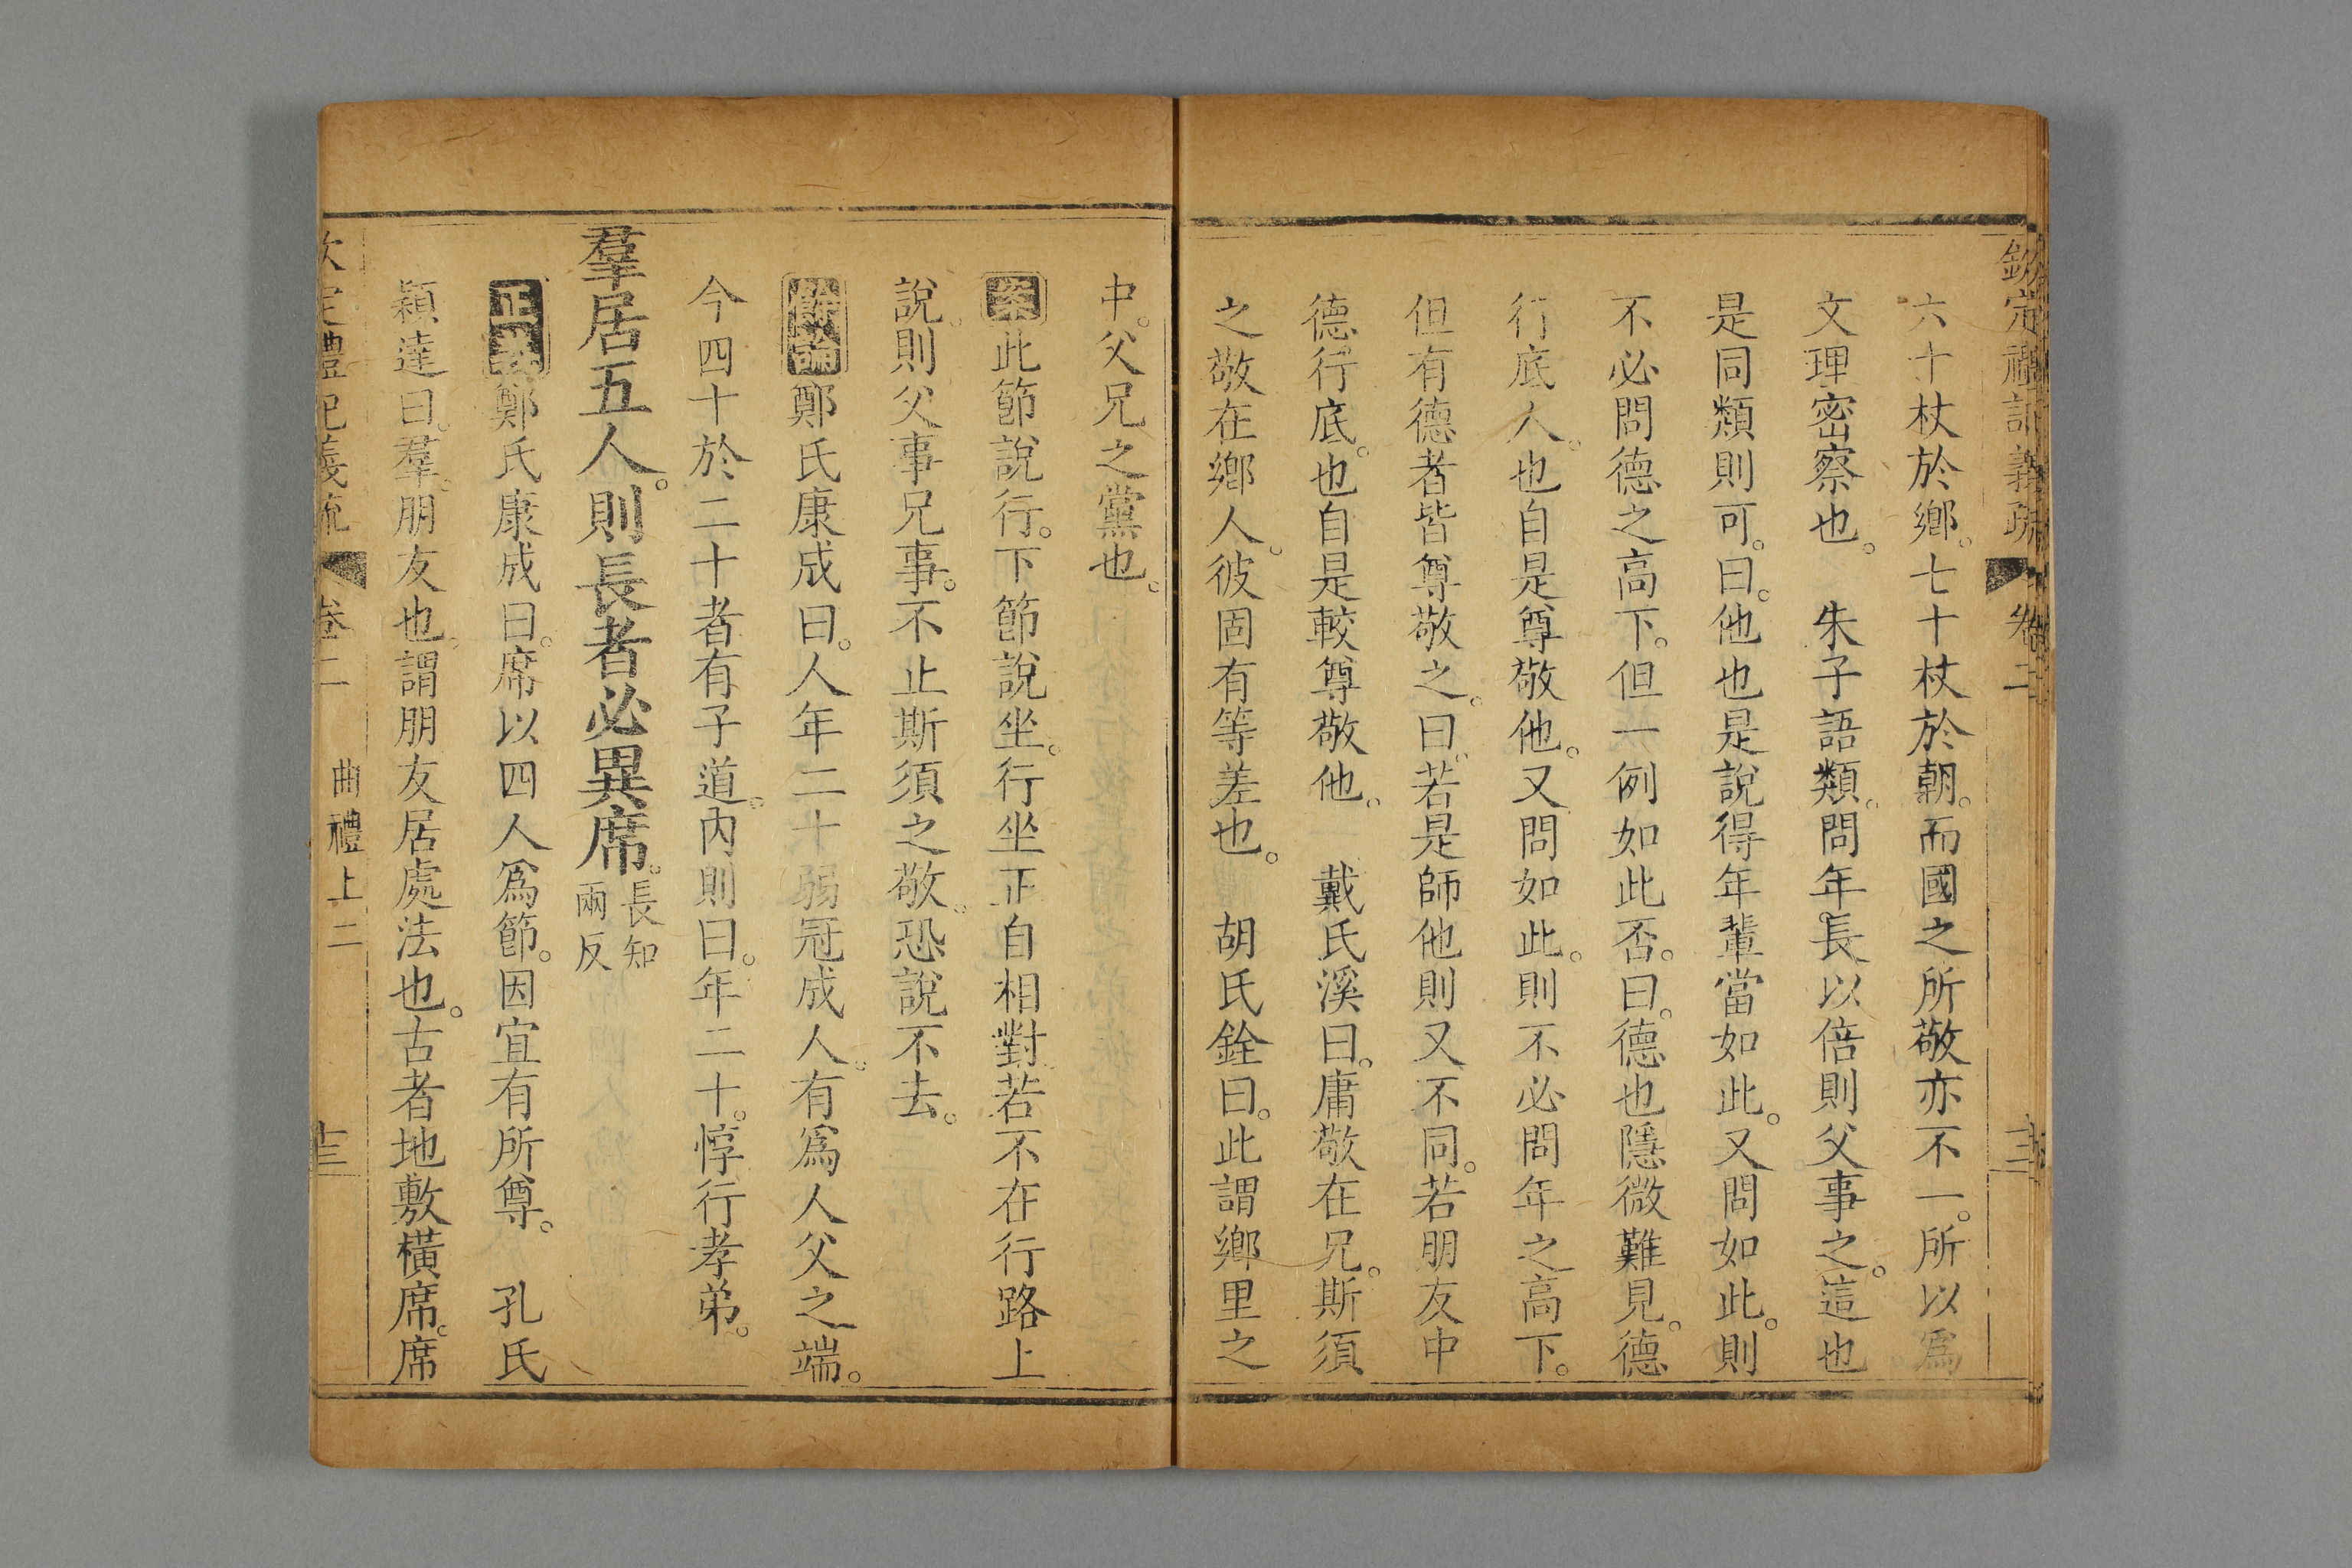 欽定禮記義疏 卷二 十二
六十杖於鄉。七十杖於朝。而國之所敬亦不一。所以爲
文理密察也。 朱子語類。問年長以倍則父事之。這也
是同類則可。曰。他也是說得年輩當如此。又問如此。則
不必問德之高下。但一例如此否。曰。德也隱微難見。德
行底人。也自是尊敬他。又問如此。則不必問年之高下。
但有德者皆尊敬之。曰。若是師他則又不同。若朋友中
德行底。也自是較尊敬他。 戴氏溪曰。庸敬在兄。斯須
之敬在鄉人。彼固有等差也。 胡氏銓曰。此謂鄉里之
中。父兄之黨也。
案此節說行。下節說坐。行坐正自相對若不在行路上
說。則父事兄事。不止斯須之敬。恐說不去。
餘論鄭氏康成曰。人年二十弱冠成人。有爲人父之端。
今四十於二十者有子道。內則曰。年二十。惇行孝弟。
羣居五人。則長者必異席。長知兩反
正義鄭氏康成曰。席以四人爲節。因宜有所尊。 孔氏
穎達曰。羣。朋友也。謂朋友居處法也。古者地敷橫席。席
欽定禮記義疏 卷二 曲禮上二 十三